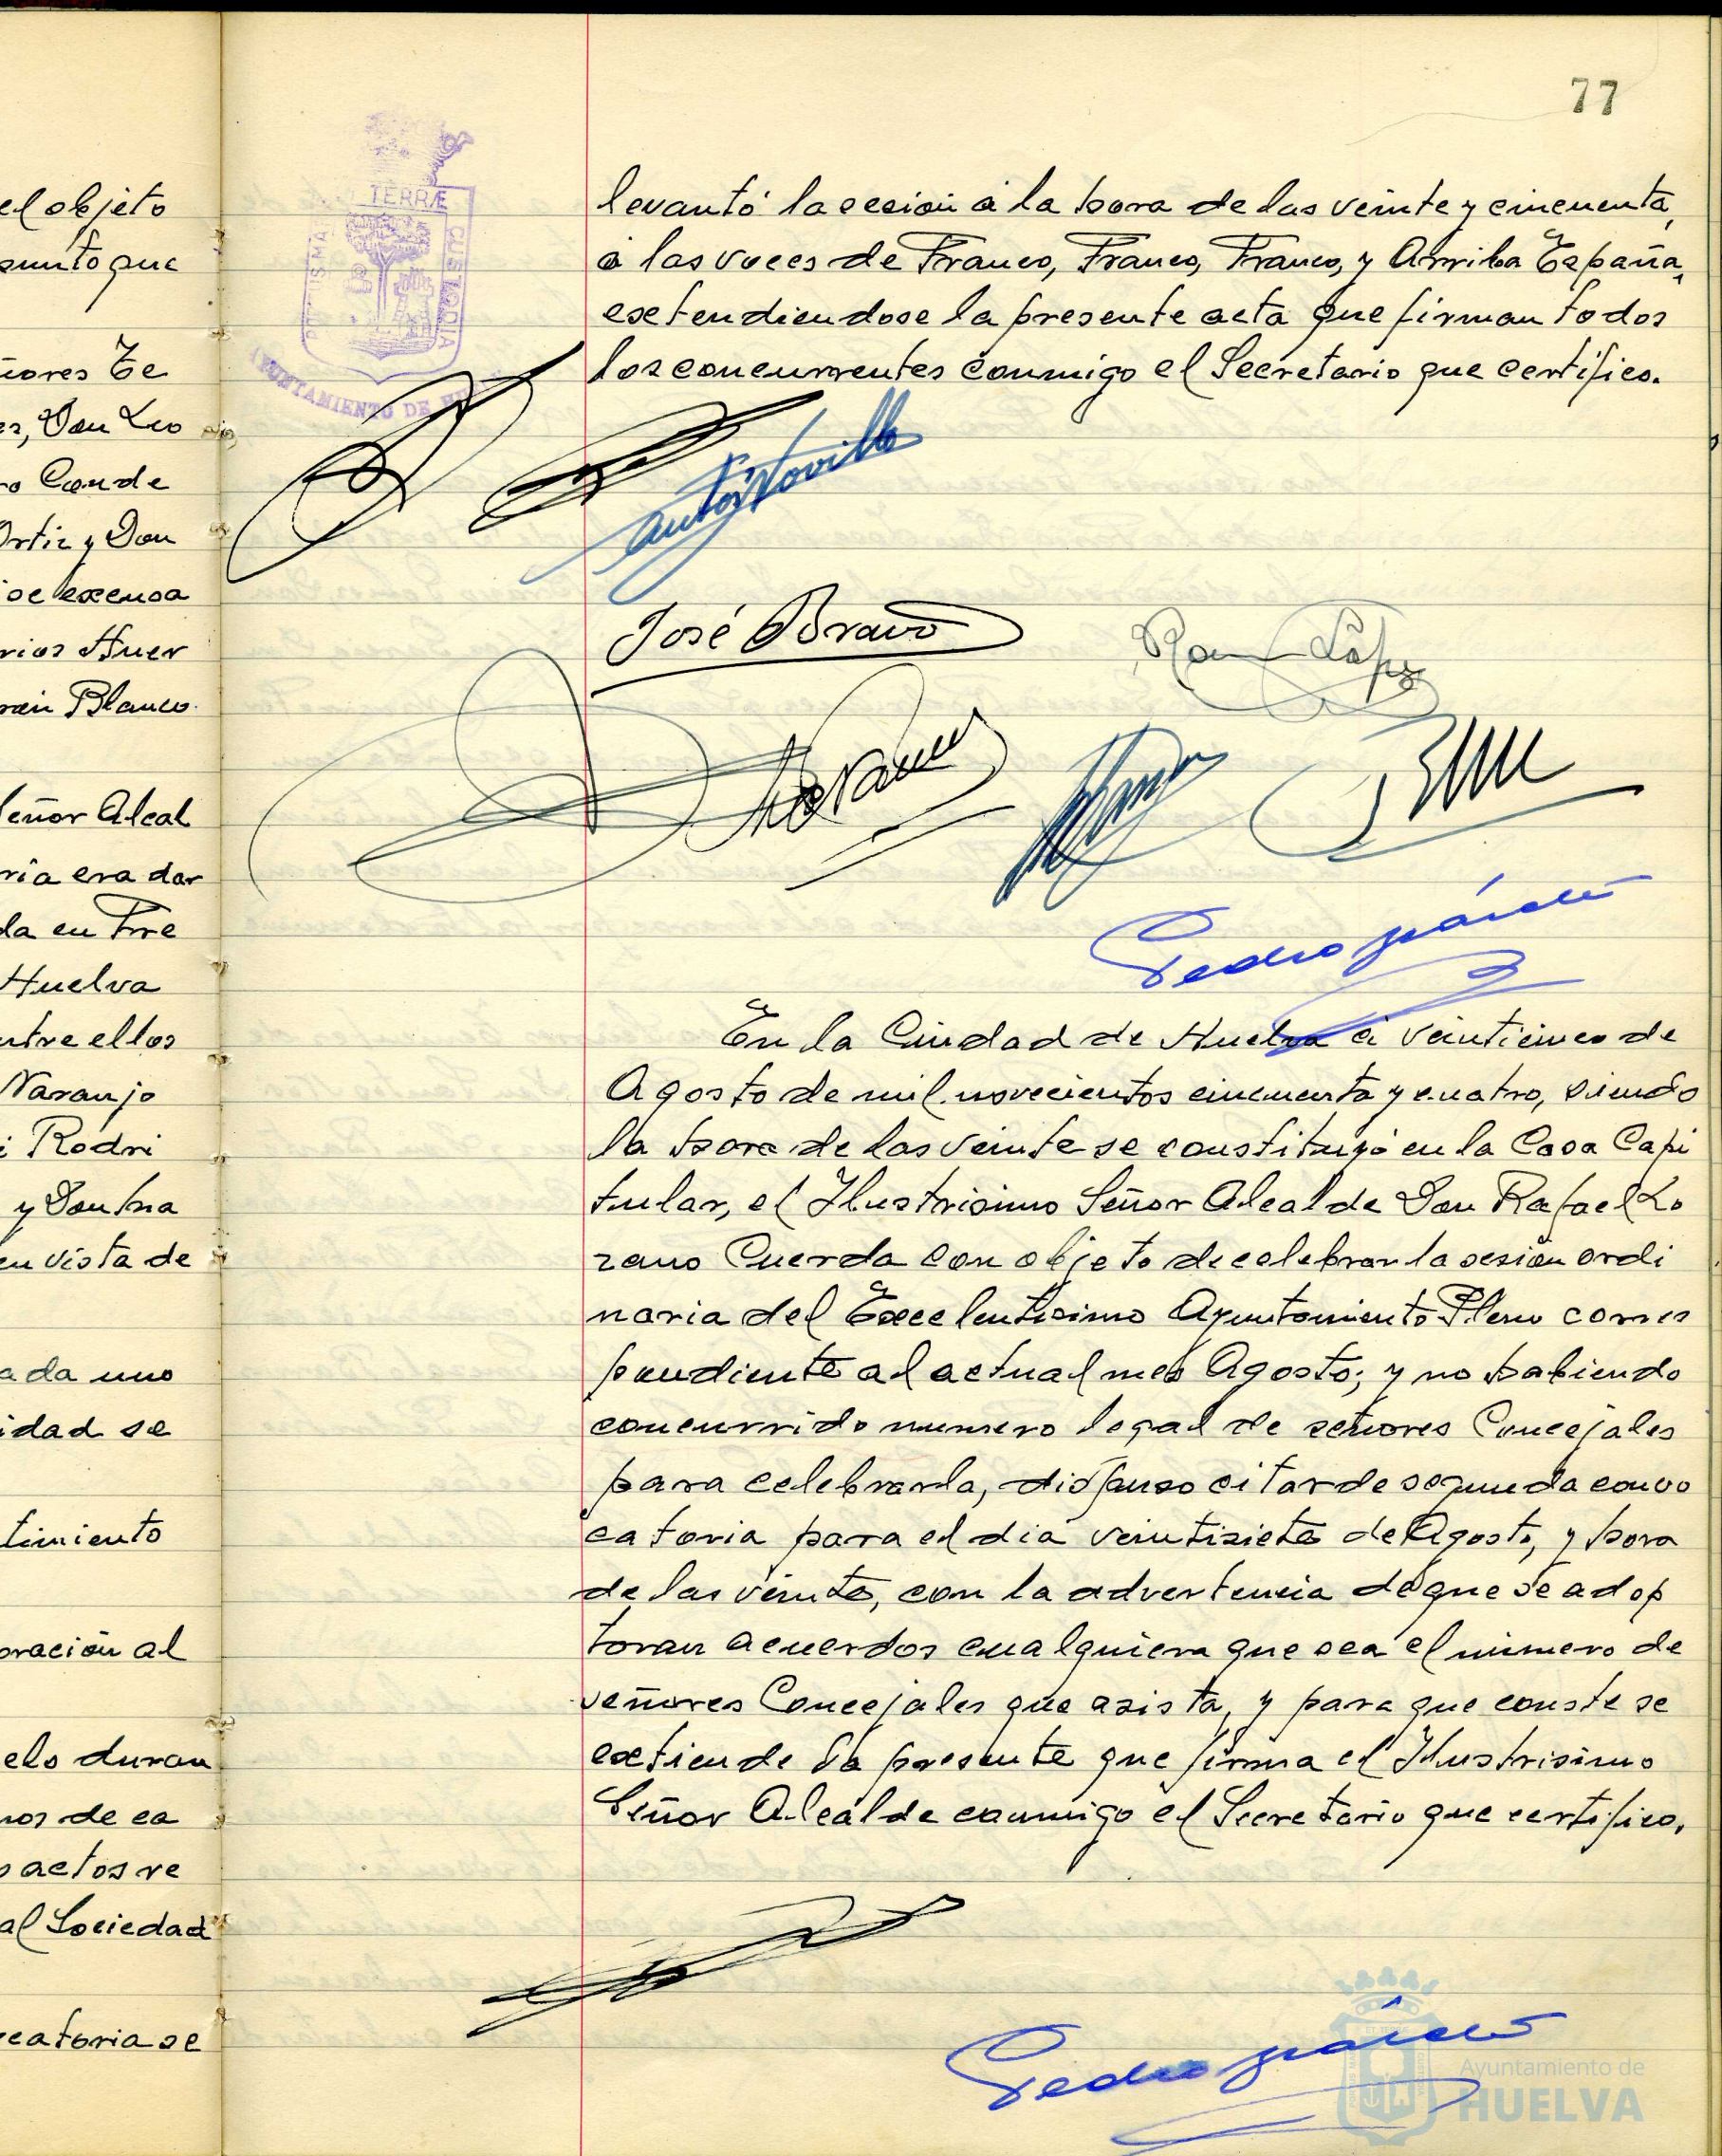 77
el objeto
sunto que
ñores Te
es, Don Leo
ro Conde
Ortiz y Don
se excusa
rios Huer
Blanco.
Señor Alcal
ria era dar
da en Fre
Huelva
ntre ellos
Naranjo
i Rodri
y Don Ina
en vista de
ada uno
idad se
timiento
oración al
elo duran
nos de ca
o actos re
al Sociedad
catoria se
TERRÆ
CUSTODIA
AYUNTAMIENTO DE HU
levantó la sesion a la hora de las veinte y cincuenta,
a las voces de Franco, Franco, Franco, y Arriba España,
extendiendose la presente acta que firman todos
los concurrentes conmigo el Secretario que certifico.
José Bravo
Pedro García
En la Ciudad de Huelva a veinticinco de
Agosto de mil novecientos cincuenta y cuatro, siendo
la hora de las veinte se constituyó en la Casa Capi
tular, el Ilustrisimo Señor Alcalde Don Rafael Lo
zano Cuerda con objeto de celebrar la sesión ordi
naria del Excelentisimo Ayuntamiento Pleno corres
pondiente al actual mes Agosto; y no habiendo
concurrido numero legal de señores Concejales
para celebrarla, dispuso citar de segunda convo
catoria para el dia veintisiete de Agosto, y hora
de las veinte, con la advertencia de que se adop
toran acuerdos cualquiera que sea el número de
señores Concejales que asista, y para que conste se
extiende la presente que firma el Ilustrisimo
Señor Alcalde conmigo el Secretario que certifico.
Pedro García
Ayuntamiento de
HUELVA